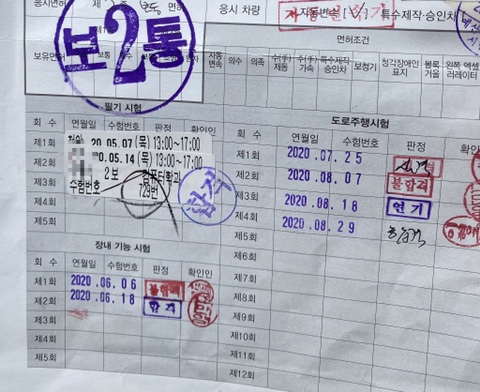 응시면허
응시 차량
자동변속기
특수제작·승인차
보2통
면허조건
자동변속
의수
의족
수(手)제동
수(手)가속
특수제작승인차
보청기
청각장애인표지
볼록거울
왼쪽 엑셀러레이터
필기 시험
회 수 연월일 수험번호 판정 확인인
제1회 20.05.07 (목) 13:00~17:00
제2회 20.05.14 (목) 13:00~17:00
제3회 2보 컴퓨터학과
수험번호 729번
제4회
제5회
합격
장내 기능 시험
회 수 연월일 수험번호 판정 확인인
제1회 2020.06.06 불합격
제2회 2020.06.18 합격
제3회
제4회
제5회
도로주행시험
회 수 연월일 수험번호 판정
제1회 2020.07.25
제2회 2020.08.07 불합격
제3회 2020.08.18 연기
제4회 2020.08.29
제5회
제6회
제7회
제8회
제9회
제10회
제11회
제12회